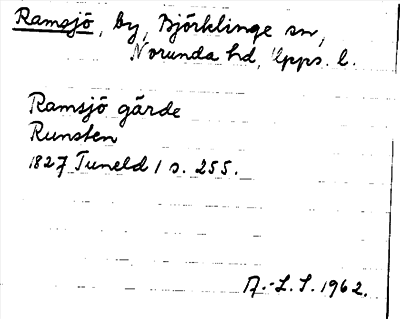 Ramsjö, by, Björklinge sn,
Norunda hd, Upps. l.
Ramsjö gärde
Runsten
1827 Tuneld 1 s. 255.
A.-L. S. 1962.